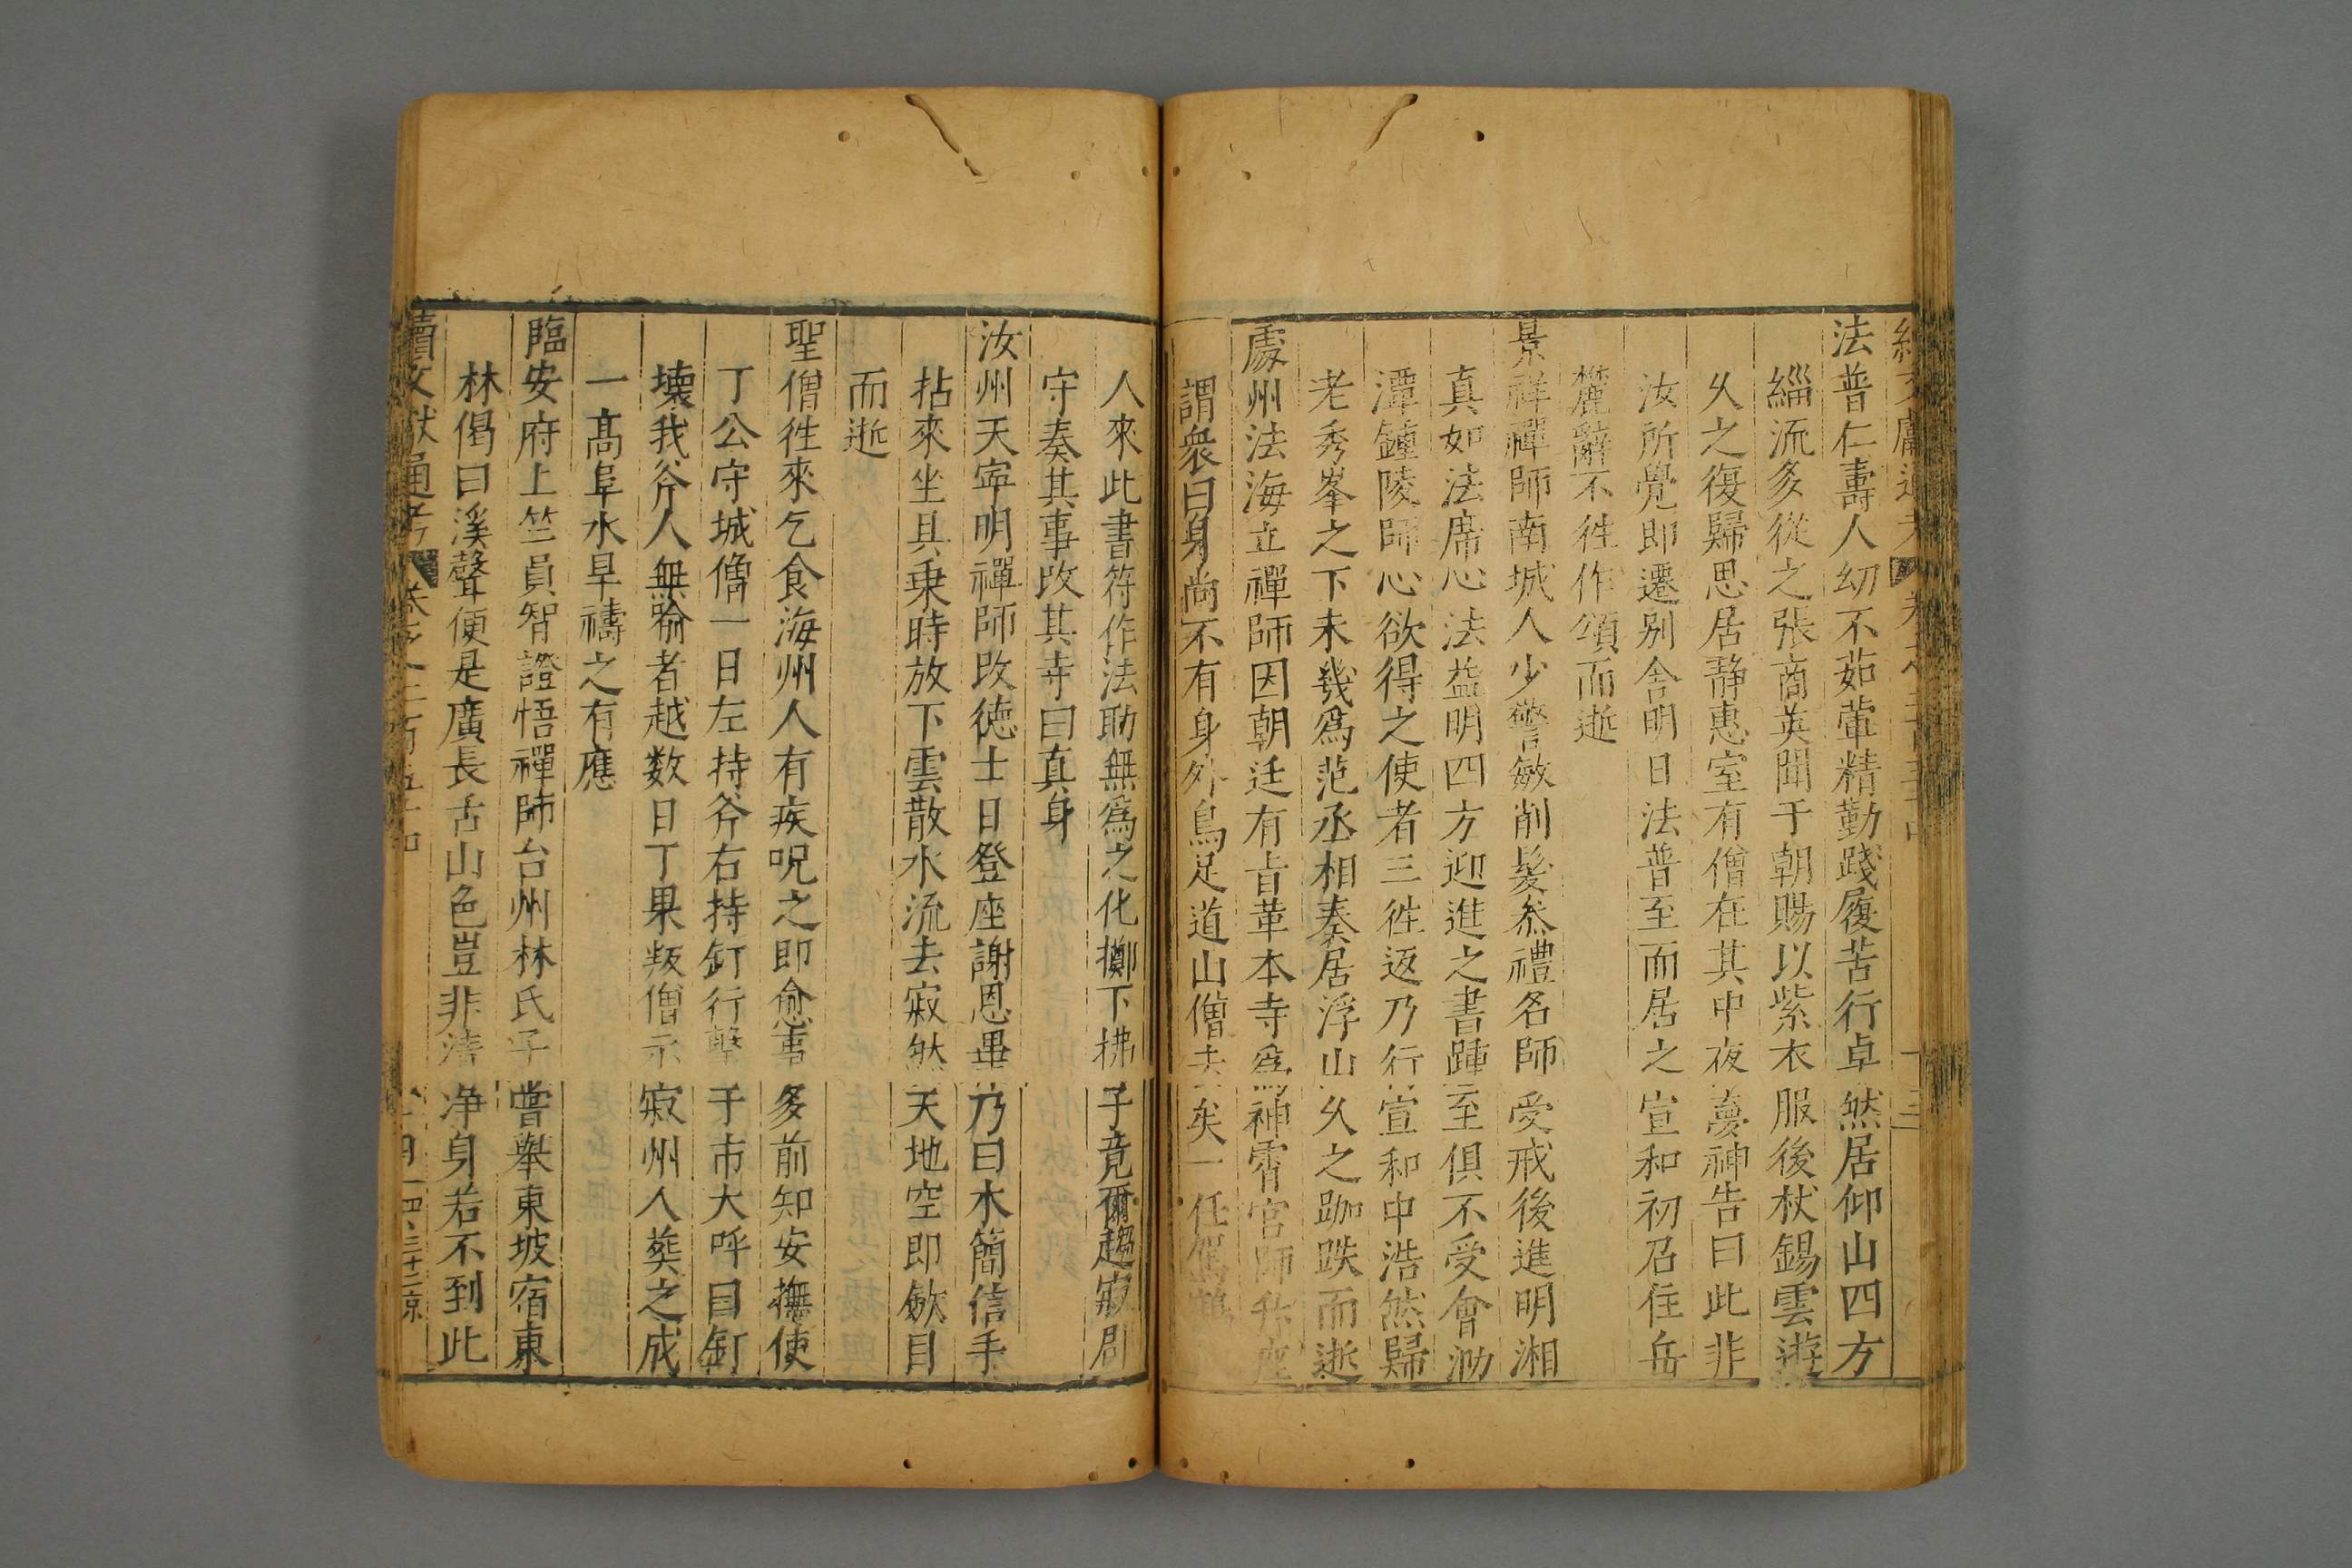 法普仁壽人幼不茹葷精勤踐履苦行卓然居仰山四方
緇流多從之張商英聞于朝賜以紫衣服後杖錫雲遊
乆之復歸思居靜惠室有僧在其中夜夢神告曰此非
汝所覺即遷别舍明日法普至而居之宣和初召住岳
麓辭不徃作頌而逝
景祥禪師南城人少警敏削髮叅禮名師受戒後進明湘
真如法席心法益明四方迎進之書踵至俱不受會泐
潭鍾陵師心欲得之使者三徃返乃行宣和中浩然歸
老秀峯之下未幾爲范丞相奏居浮山乆之跏趺而逝
處州法海立禪師因朝廷有旨革本寺爲神霄宮師陞座
謂衆曰身尚不有身外烏足道山僧去矣一任駕鶴
人來此書符作法助無爲之化擲下拂子竟爾趨寂郡
守奏其事改其寺曰真身
汝州天寧明禪師改德士日登座謝恩畢乃曰木簡信手
拈來坐具乗時放下雲散水流去寂然天地空即斂目
而逝
聖僧徃來乞食海州人有疾呪之即愈事多前知安撫使
丁公守城僑一日左持斧右持釘行擊于市大呼曰釘
壊我斧人無喻者越数日丁果叛僧示寂州人葵之成
一高阜水旱禱之有應
臨安府上竺員智證悟禪師台州林氏子嘗舉東坡宿東
林偈曰溪聲便是廣長舌山色豈非清净身若不到此
續文献通考 卷之二百五十四